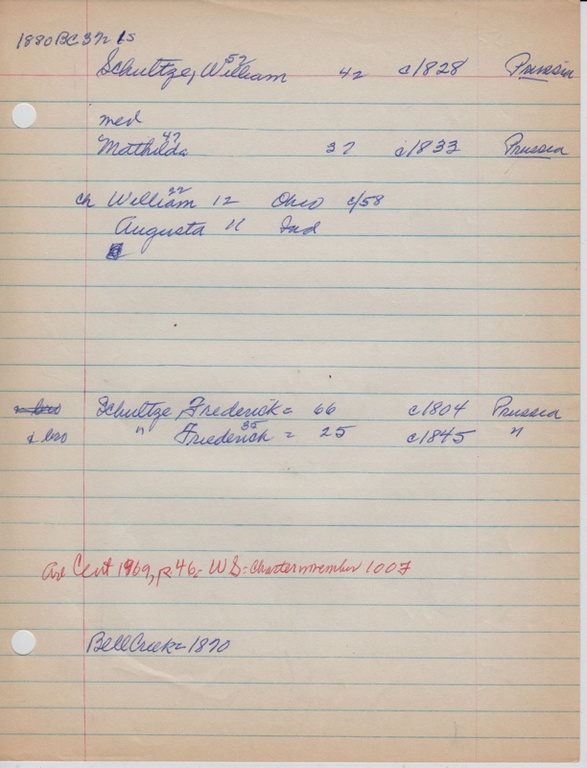 1880 BC 372 1s
52
Schultze, William 42 c1828 Prussia
med
47
Mathilda 37 c1833 Prussia
22
ch William 12 Ohio c/58
Augusta 11 Ind
Schultze, Frederick = 66 c1804 Prussia
35
& bro " Friederick = 25 c1845 "
Cent 1969, p. 46 = WS = Charter member 100F
Bell Creek = 1870